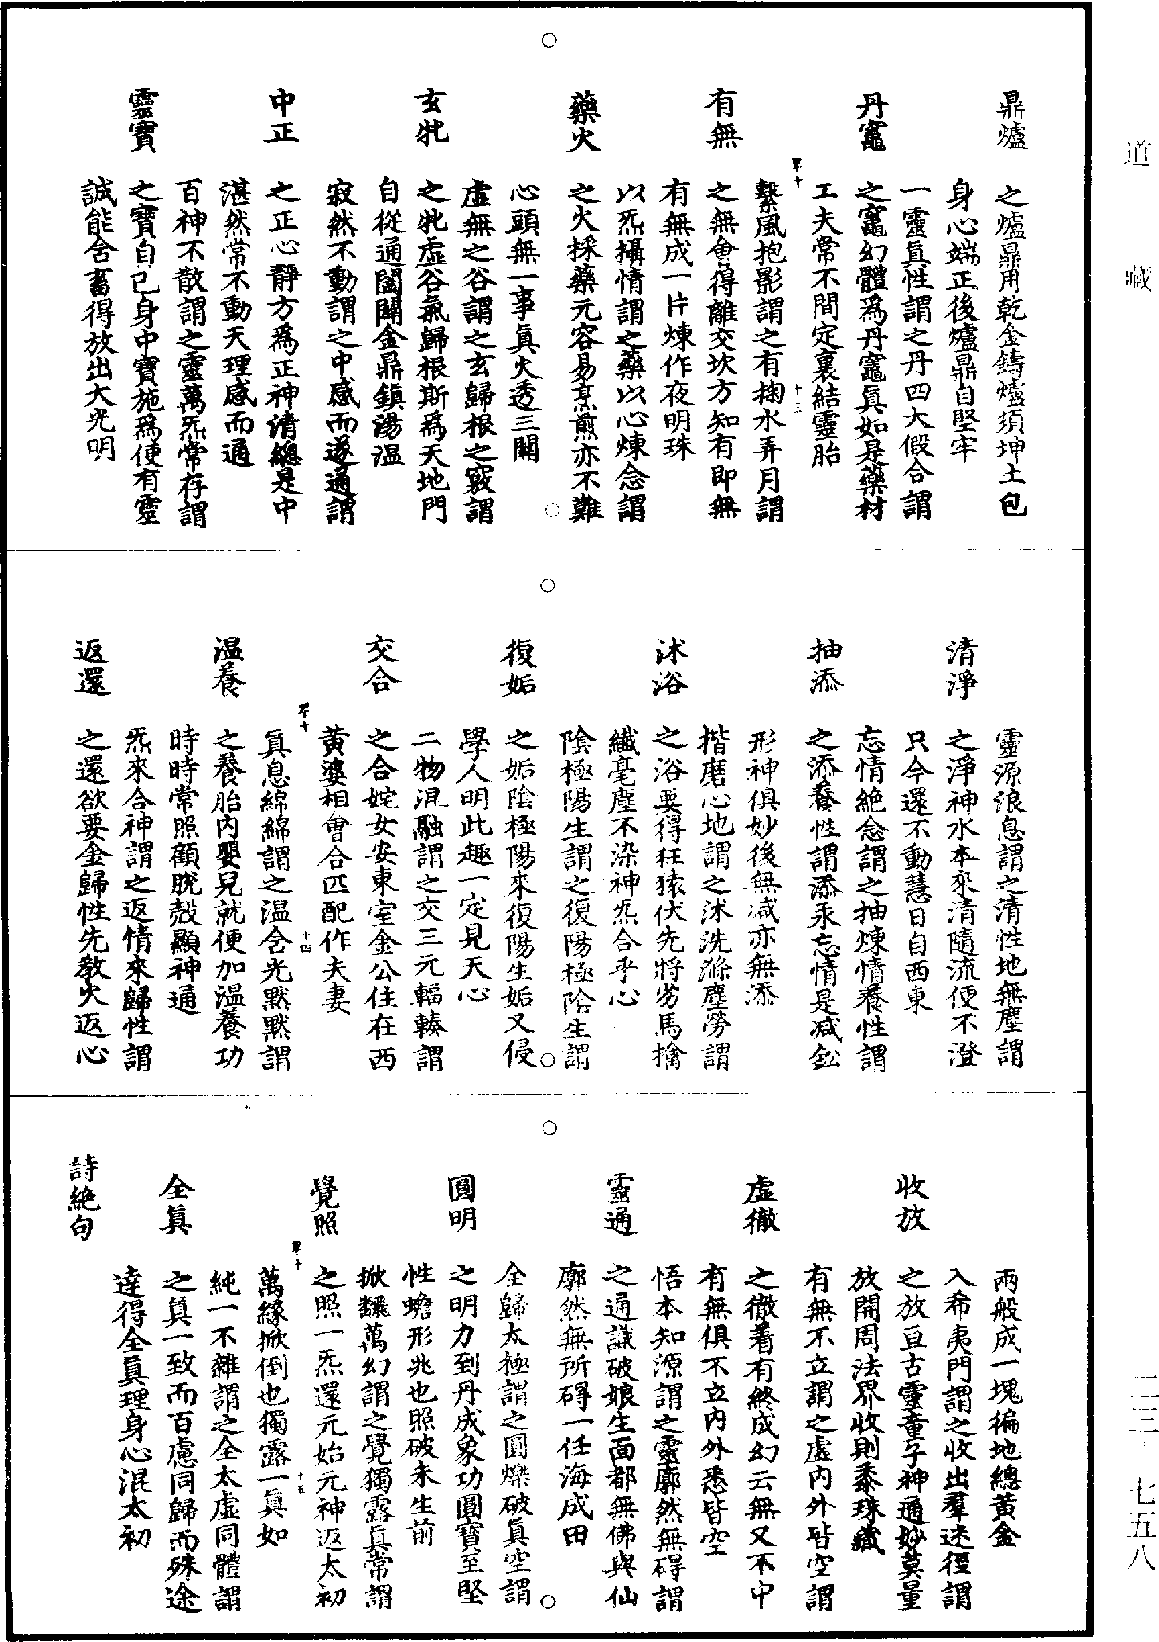 道藏
鼎爐
之爐鼎用乾金鑄爐須坤土包
身心端正後爐鼎自堅牢
一靈眞性謂之丹四大假合謂
丹竈
之竈幻體爲丹竈眞如是藥材
工夫常不間定裏結靈胎
繫風抱影謂之有掬水弄月謂
有無
之無會得離交坎方知有即無
有無成一片煉作夜明珠
以炁攝情謂之藥以心煉念謂
藥火
之火採藥元容易烹煎亦不難
心頭無一事眞火透三關
虛無之谷謂之玄歸根之竅謂
玄牝
之牝虛谷氣歸根斯爲天地門
自從通闔闢金鼎鎮湯温
寂然不動謂之中感而遂通謂
中正
之正心靜方爲正神清總是中
湛然常不動天理感而通
百神不散謂之靈萬炁常存謂
靈寶
之寶自己身中寶施爲便有靈
誠能舍蓄得放出大光明
靈源浪息謂之清性地無塵謂
清淨
之淨神水本來清隨流便不澄
只今還不動慧日自西東
忘情絶念謂之抽煉情養性謂
抽添
之添養性謂添汞忘情是减鈆
形神俱妙後無减亦無添
揩磨心地謂之沐洗滌塵勞謂
沐浴
之浴要得狂猿伏先將劣馬擒
纖毫塵不染神炁合乎心
陰極陽生謂之復陽極陰生謂
復姤
之姤陰極陽來復陽生姤又侵
學人明此趣一定見天心
二物混融謂之交三元輻輳謂
交合
之合姹女安東室金公住在西
黄婆相會合匹配作夫妻
眞息綿綿謂之温含光默默謂
温養
之養胎内嬰兒就便加温養功
時時常照顧脱殻顯神通
炁來合神謂之返情來歸性謂
返還
之還欲要金歸性先教火返心
兩般成一塊徧地總黄金
入希夷門謂之收出羣迷徑謂
收放
之放亘古靈童子神通妙莫量
放開周法界收則黍珠藏
有無不立謂之虛内外皆空謂
虛徹
之徹着有終成幻云無又不中
有無俱不立内外悉皆空
悟本知源謂之靈廓然無碍謂
靈通
之通識破娘生面都無佛與仙
廓然無所碍一任海成田
全歸太極謂之圓爍破眞空謂
圓明
之明力到丹成象功圓寶至堅
性蟾形兆也照破未生前
掀飜萬幻謂之覺獨露眞常謂
覺照
之照一炁還元始元神返太初
萬緣掀倒也獨露一眞如
純一不雜謂之全太虛同體謂
全眞
之眞一致而百慮同歸而殊途
達得全眞理身心混太初
詩絶句
二三・七五八